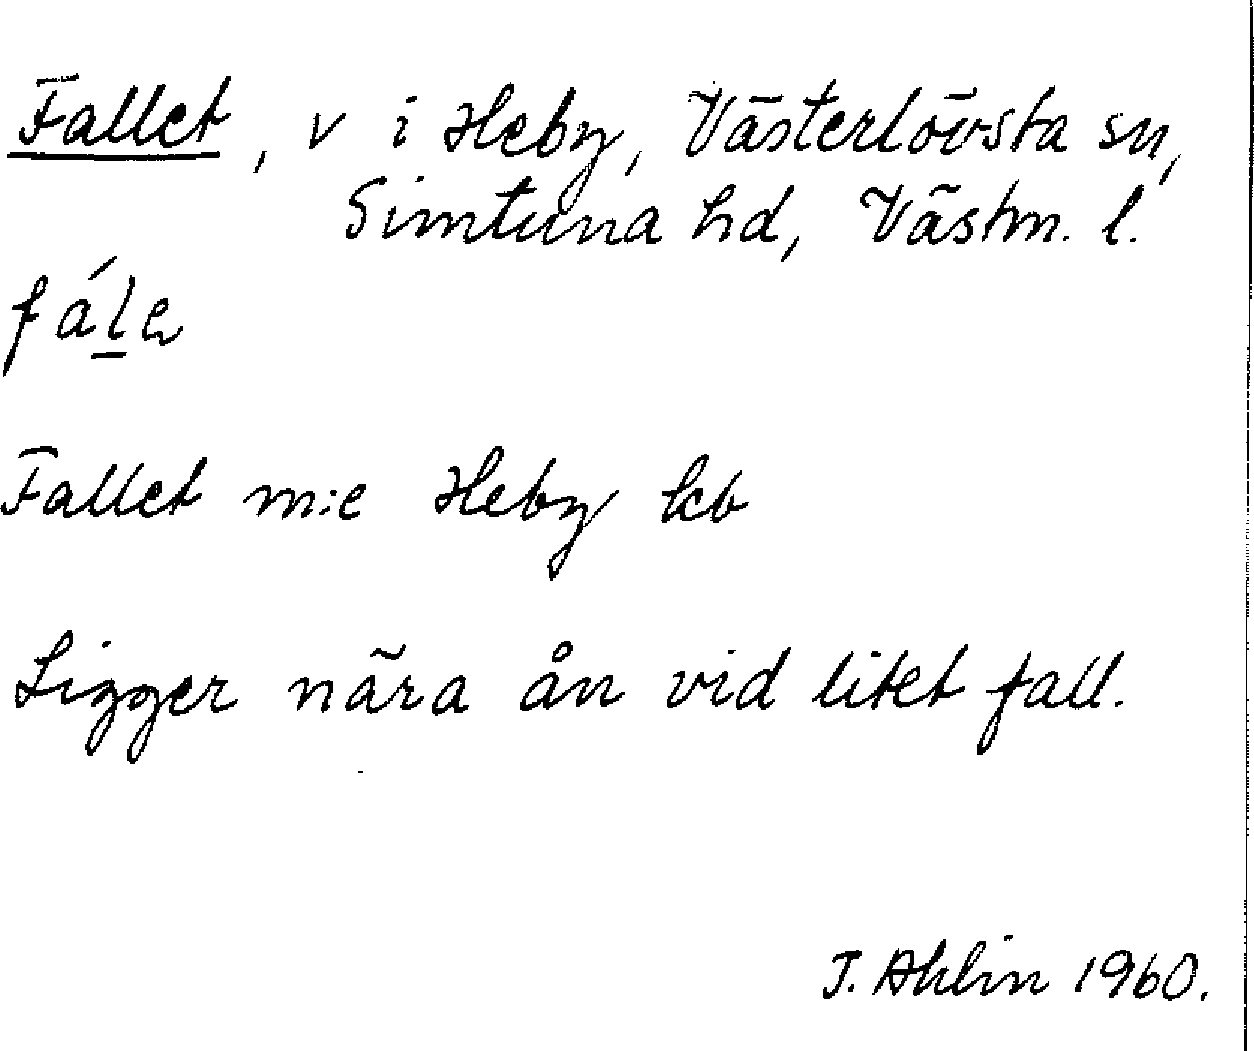 Fallet, v i Heby, Västerlövsta sn,
Simtuna hd, Västm. l.
fále
Fallet m:e Heby kb
Ligger nära ån vid litet fall.
J. Ahlin 1960.